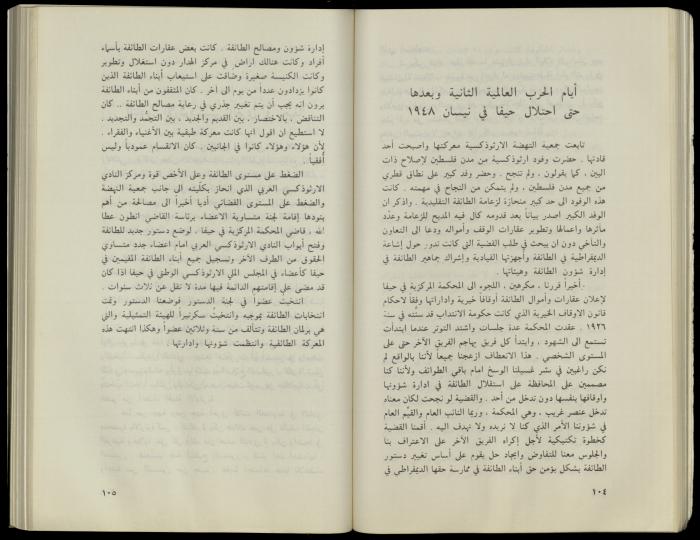 أيام الحرب العالمية الثانية وبعدها
حتى احتلال حيفا في نيسان ١٩٤٨
تابعت جمعية النهضة الارثوذكسية معركتها واصبحت أحد
قادتها . حضرت وفود ارثوذكسية من مدن فلسطين لإصلاح ذات
البين ، كما يقولون ، ولم تنجح . وحضر وفد كبير على نطاق قطري
من جميع مدن فلسطين ، ولم يتمكن من النجاح في مهمته . كانت
هذه الوفود الى حد كبير منحازة لزعامة الطائفة التقليدية . واذكر ان
الوفد الكبير اصدر بياناً بعد قدومه كال فيه المديح للزعامة وعدّد
مآثرها واعمالها وتطوير عقارات الوقف وأمواله ودعا الى التعاون
والتآخي دون ان يبحث في طلب القضية التي كانت تدور حول إشاعة
الديمقراطية في الطائفة وأجهزتها القيادية وإشراك جماهير الطائفة في
إدارة شؤون الطائفة وهيئاتها .
أخيراً قررنا ، مكرهين ، اللجوء الى المحكمة المركزية في حيفا
لإعلان عقارات وأموال الطائفة أوقافاً خيرية واداراتها وفقاً لاحكام
قانون الاوقاف الخيرية الذي كانت حكومة الانتداب قد سنّته في سنة
١٩٢٦ . عقدت المحكمة عدة جلسات واشتد التوتر عندما ابتدأت
تستمع الى الشهود ، وابتدأ كل فريق يهاجم الفريق الآخر حتى على
المستوى الشخصي . هذا الانعطاف ازعجنا جميعاً لأننا بالواقع لم
نكن راغبين في نشر غسيلنا الوسخ امام باقي الطوائف ولأننا كنا
مصممين على المحافظة على استقلال الطائفة في ادارة شؤونها
واوقافها بنفسها دون تدخل من أحد . والقضية لو نجحت لكان معناه
تدخل عنصر غريب ، وهي المحكمة ، وربما النائب العام والقيّم العام
في شؤوننا الأمر الذي كنا لا نريده ولا نهدف اليه . أقمنا القضية
كخطوة تكتيكية لأجل إكراه الفريق الآخر على الاعتراف بنا
والجلوس معنا للتفاوض وايجاد حل يقوم على أساس تغيير دستور
الطائفة بشكل يؤمن حق أبناء الطائفة في ممارسة حقها الديمقراطي في
١٠٤
إدارة شؤون ومصالح الطائفة . كانت بعض عقارات الطائفة بأسماء
أفراد وكانت هنالك اراض في مركز الهدار دون استغلال وتطوير
وكانت الكنيسة صغيرة وضاقت على استيعاب أبناء الطائفة الذين
كانوا يزدادون عدداً من يوم الى آخر . كان المثقفون من أبناء الطائفة
يرون انه يجب أن يتم تغيير جذري في رعاية مصالح الطائفة .. كان
التناقض ، بالاختصار ، بين القديم والجديد ، بين التجمُّد والتجديد .
لا استطيع ان اقول انها كانت معركة طبقية بين الأغنياء والفقراء .
لأن هؤلاء وهؤلاء كانوا في الجانبين . كان الانقسام عمودياً وليس
أُفقياً .
الضغط على مستوى الطائفة وعلى الأخص قوة ومركز النادي
الارثوذكسي العربي الذي انحاز بكلّيته الى جانب جمعية النهضة
والضغط على المستوى القضائي أديا أخيراً الى مصالحة من أهم
بنودها إقامة لجنة متساوية الاعضاء برئاسة القاضي انطون عطا
الله ، قاضي المحكمة المركزية في حيفا ، لوضع دستور جديد للطائفة
وفتح أبواب النادي الارثوذكسي العربي امام اعضاء جدد متساوي
الحقوق من الطرف الآخر وتسجيل جميع أبناء الطائفة المقيمين في
حيفا كأعضاء في المجلس الملي الارثوذكسي الوطني في حيفا اذا كان
قد مضى على إقامتهم الدائمة فيها مدة لا تقل عن ثلاث سنوات .
انتخبت عضواً في لجنة الدستور فوضعنا الدستور وتمت
انتخابات الطائفة بموجبه وانتخبتُ سكرتيراً للهيئة التمثيلية والتي
هي برلمان الطائفة وتتألف من ستة وثلاثين عضواً وهكذا انتهت هذه
المعركة الطائفية وانتظمت شؤونها وادارتها .
١٠٥